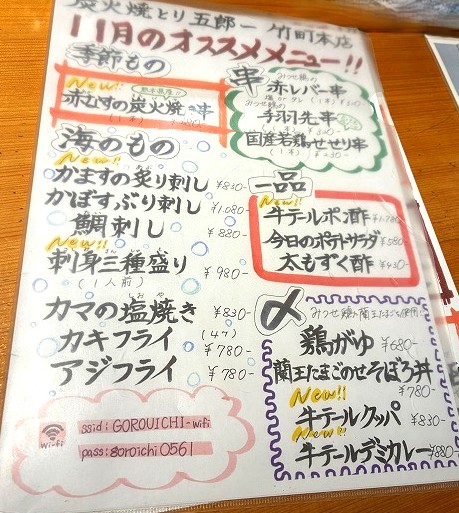 炭火焼とり五郎一 竹町本店
11月のオススメメニュー!!
季節もの
New!!
赤むすの炭火焼き串
(1本)
海のもの
New!!
かますの炙り刺し ¥830-
かぼすぶり刺し ¥1,080-
鯛刺し ¥880-
New!!
刺身三種盛り ¥980-
(1人前)
カマの塩焼き ¥830-
カキフライ (4ケ) ¥780-
アジフライ ¥780-
串
みつせ鶏の
赤レバー串
みつせ鶏の
手羽先串
国産若鶏せせり串
(1本)
一品
New!!
牛テールポン酢
今日のポテトサラダ ¥580-
太もずく酢 ¥430-
〆
鶏がゆ ¥680-
蘭王たまごのせそぼろ丼
¥780-
New!!
牛テールクッパ ¥830-
New!!
牛テールデミカレー ¥880-
wi-fi
ssid: GOROUICHI-wifi
pass: goroichi0561